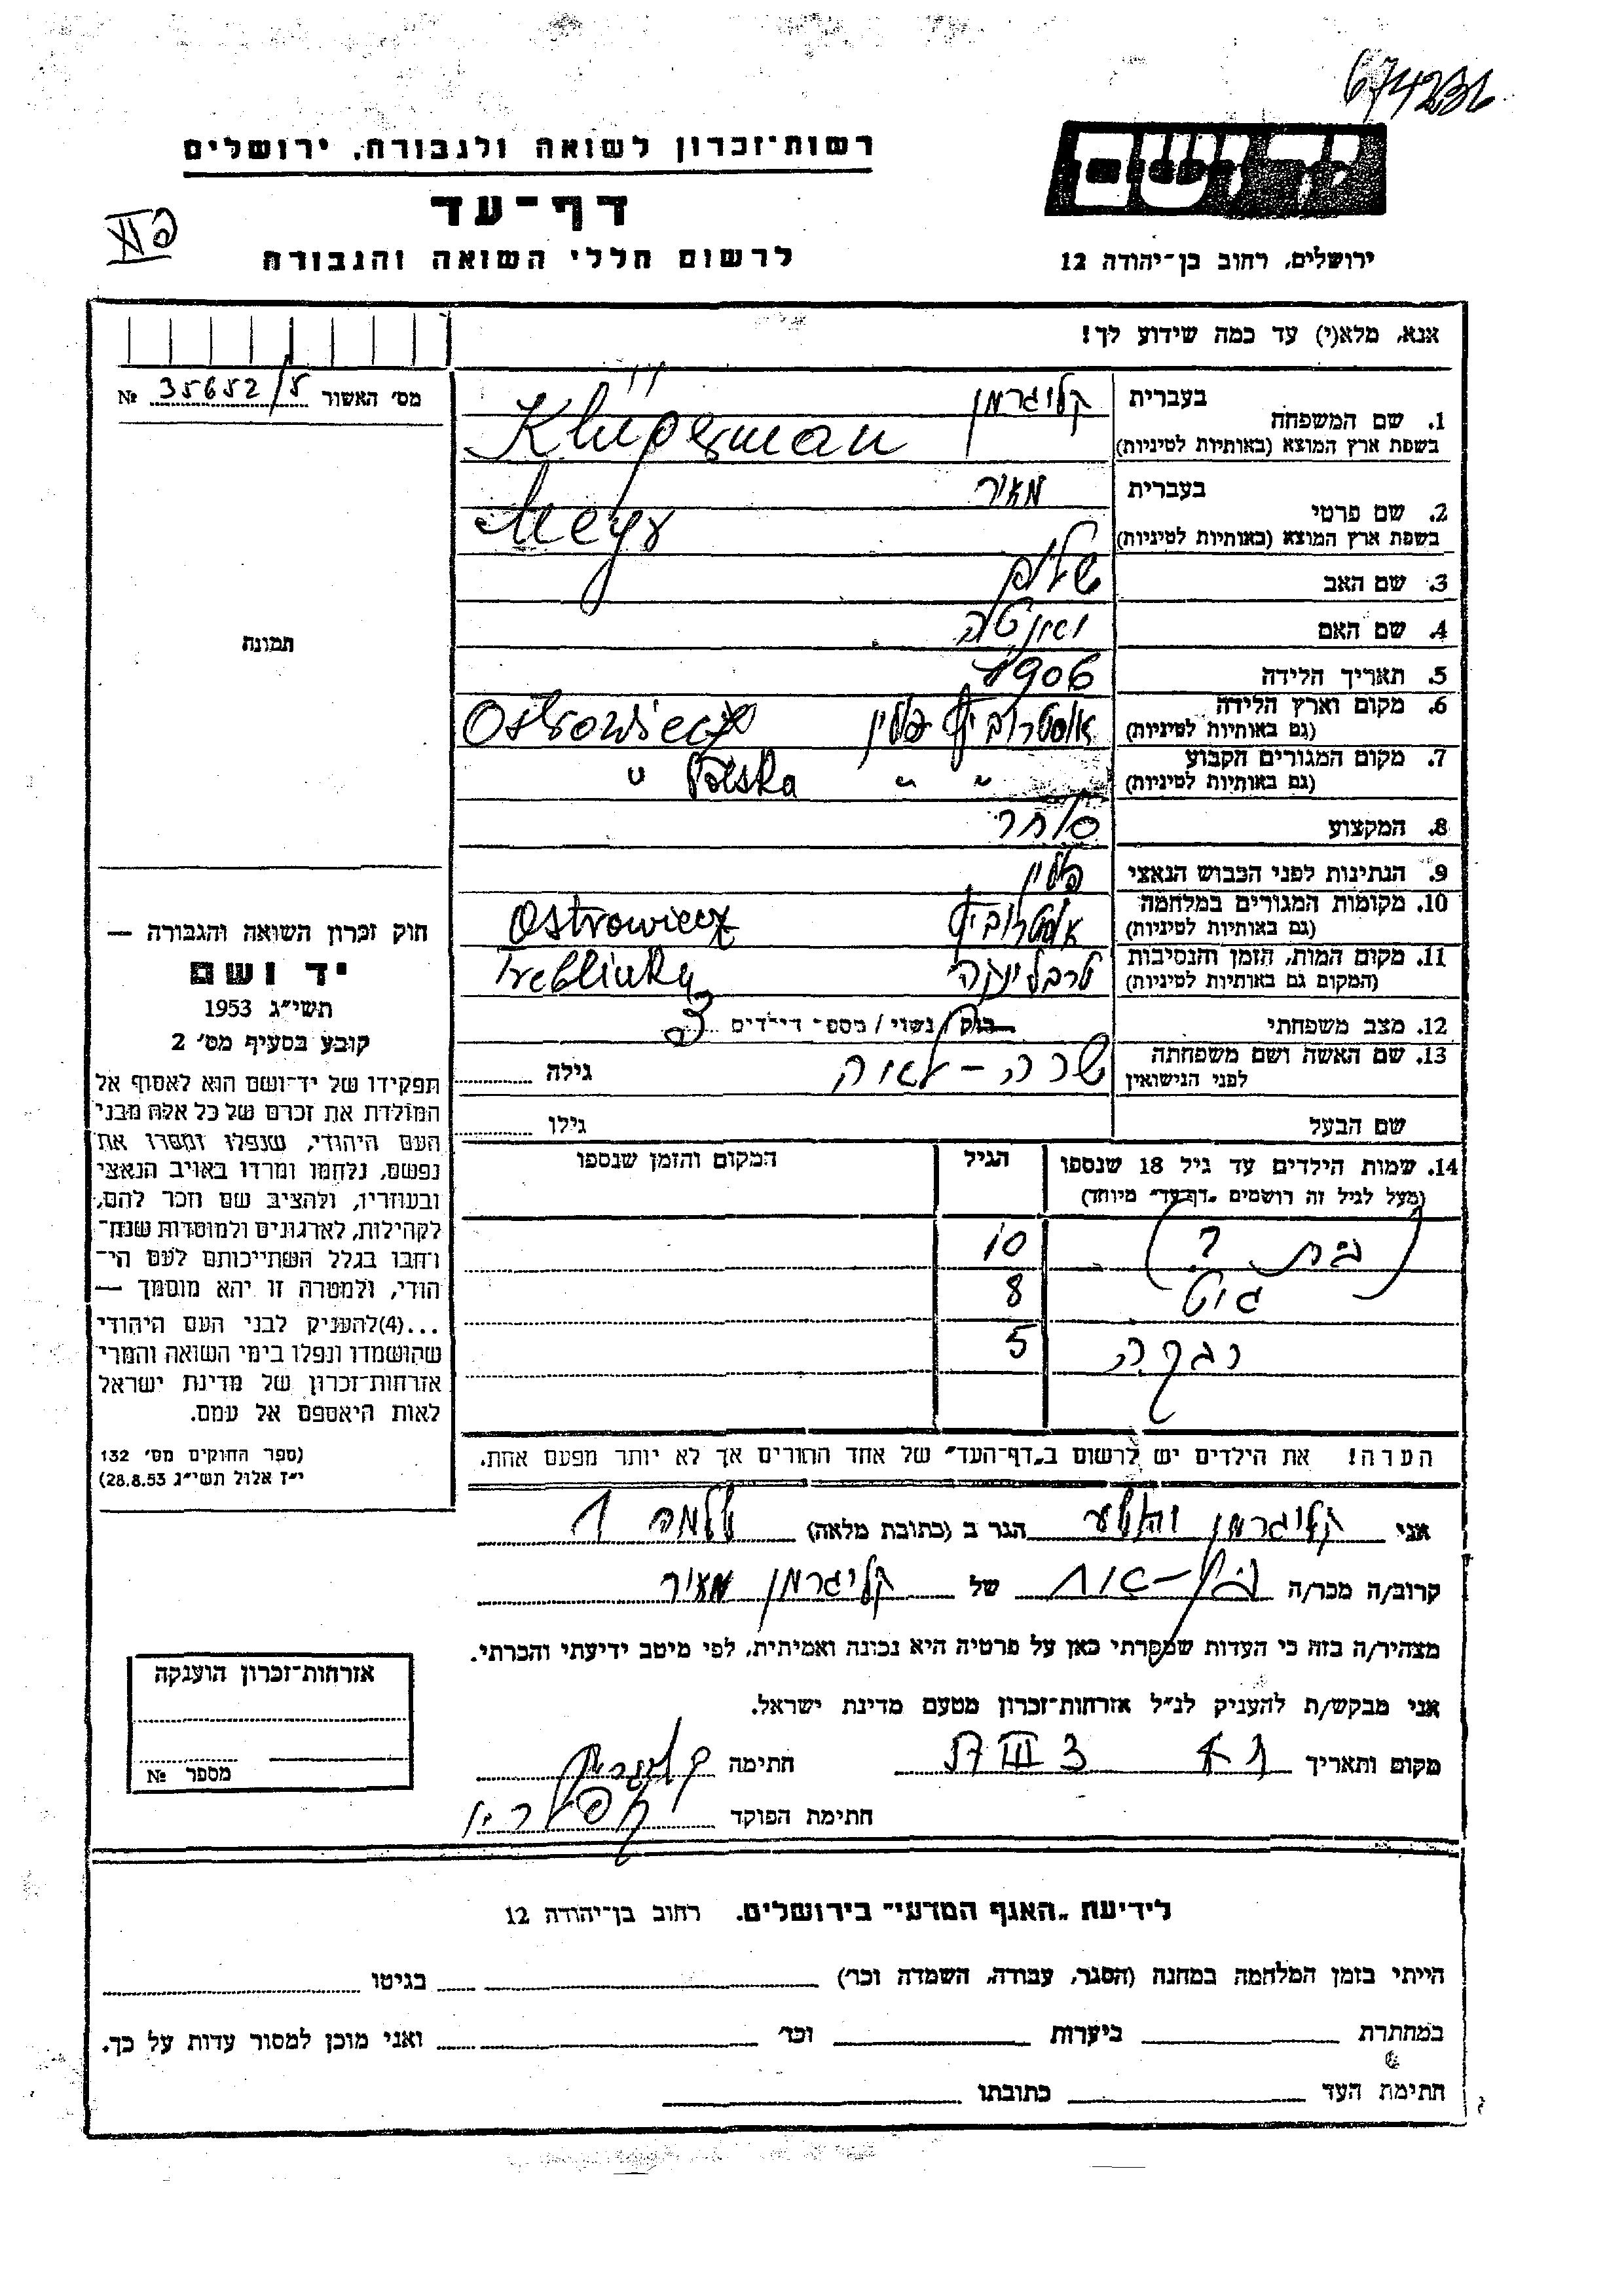 674236
רשות־זכרון לשואה ולגבורה, ירושלים
יד ושם
דף־עד
לרשום חללי השואה והגבורה
ירושלים, רחוב בן־יהודה 12
אנא, מלא(י) עד כמה שידוע לך!
מס׳ האשור 35652/5 №
תמונה
1. שם המשפחה
בעברית קליגרמן
בשפת ארץ המוצא (באותיות לטיניות)
2. שם פרטי
בעברית מאיר
בשפת ארץ המוצא (באותיות לטיניות)
3. שם האב שלום
4. שם האם
5. תאריך הלידה 1906
6. מקום וארץ הלידה
(גם באותיות לטיניות) אוסטרוביץ פולין Ostrowiecz
7. מקום המגורים הקבוע
(גם באותיות לטיניות) " " Polska "
8. המקצוע סוחר
9. הנתינות לפני הכבוש הנאצי פולין
10. מקומות המגורים במלחמה
(גם באותיות לטיניות) אוסטרוביץ Ostrowiecz
11. מקום המות, הזמן והנסיבות
(המקום גם באותיות לטיניות) טרבלינקה Treblinka
12. מצב משפחתי רווק / נשוי / מספר הילדים 3
13. שם האשה ושם משפחתה
לפני הנישואין שרה - לאה גילה
שם הבעל גילו
14. שמות הילדים עד גיל 18 שנספו הגיל המקום והזמן שנספו
(מעל לגיל זה רושמים „דף־עד” מיוחד)
(בת ?) 10
8
רבקה 5
הערה! את הילדים יש לרשום ב„דף־העד” של אחד ההורים אך לא יותר מפעם אחת.
חוק זכרון השואה והגבורה —
יד ושם
תשי״ג 1953
קובע בסעיף מס׳ 2
תפקידו של יד־ושם הוא לאסוף אל
המולדת את זכרם של כל אלה מבני
העם היהודי, שנפלו ומסרו את
נפשם, נלחמו ומרדו באויב הנאצי
ובעוזריו, ולהציב שם וזכר להם,
לקהילות, לארגונים ולמוסדות שנח־
רבו בגלל השתייכותם לעם הי־
הודי, ולמטרה זו יהא מוסמך —
...(4)להעניק לבני העם היהודי
שהושמדו ונפלו בימי השואה והמרי
אזרחות־זכרון של מדינת ישראל
לאות היאספם אל עמם.
(ספר החוקים מס׳ 132
י״ז אלול תשי״ג 28.8.53)
אני קליגרמן הגר ב (כתובת מלאה)
קרוב/ה מכר/ה של קליגרמן מאיר
מצהיר/ה בזה כי העדות שמסרתי כאן על פרטיה היא נכונה ואמיתית, לפי מיטב ידיעתי והכרתי.
אני מבקש/ת להעניק לנ״ל אזרחות־זכרון מטעם מדינת ישראל.
מקום ותאריך חתימה
חתימת הפוקד
אזרחות־זכרון הוענקה
מספר №
לידיעת „האגף המדעי” בירושלים. רחוב בן־יהודה 12
הייתי בזמן המלחמה במחנה (הסגר, עבודה, השמדה וכו׳) בגיטו
במחתרת ביערות וכו׳ ואני מוכן למסור עדות על כך.
חתימת העד כתובתו